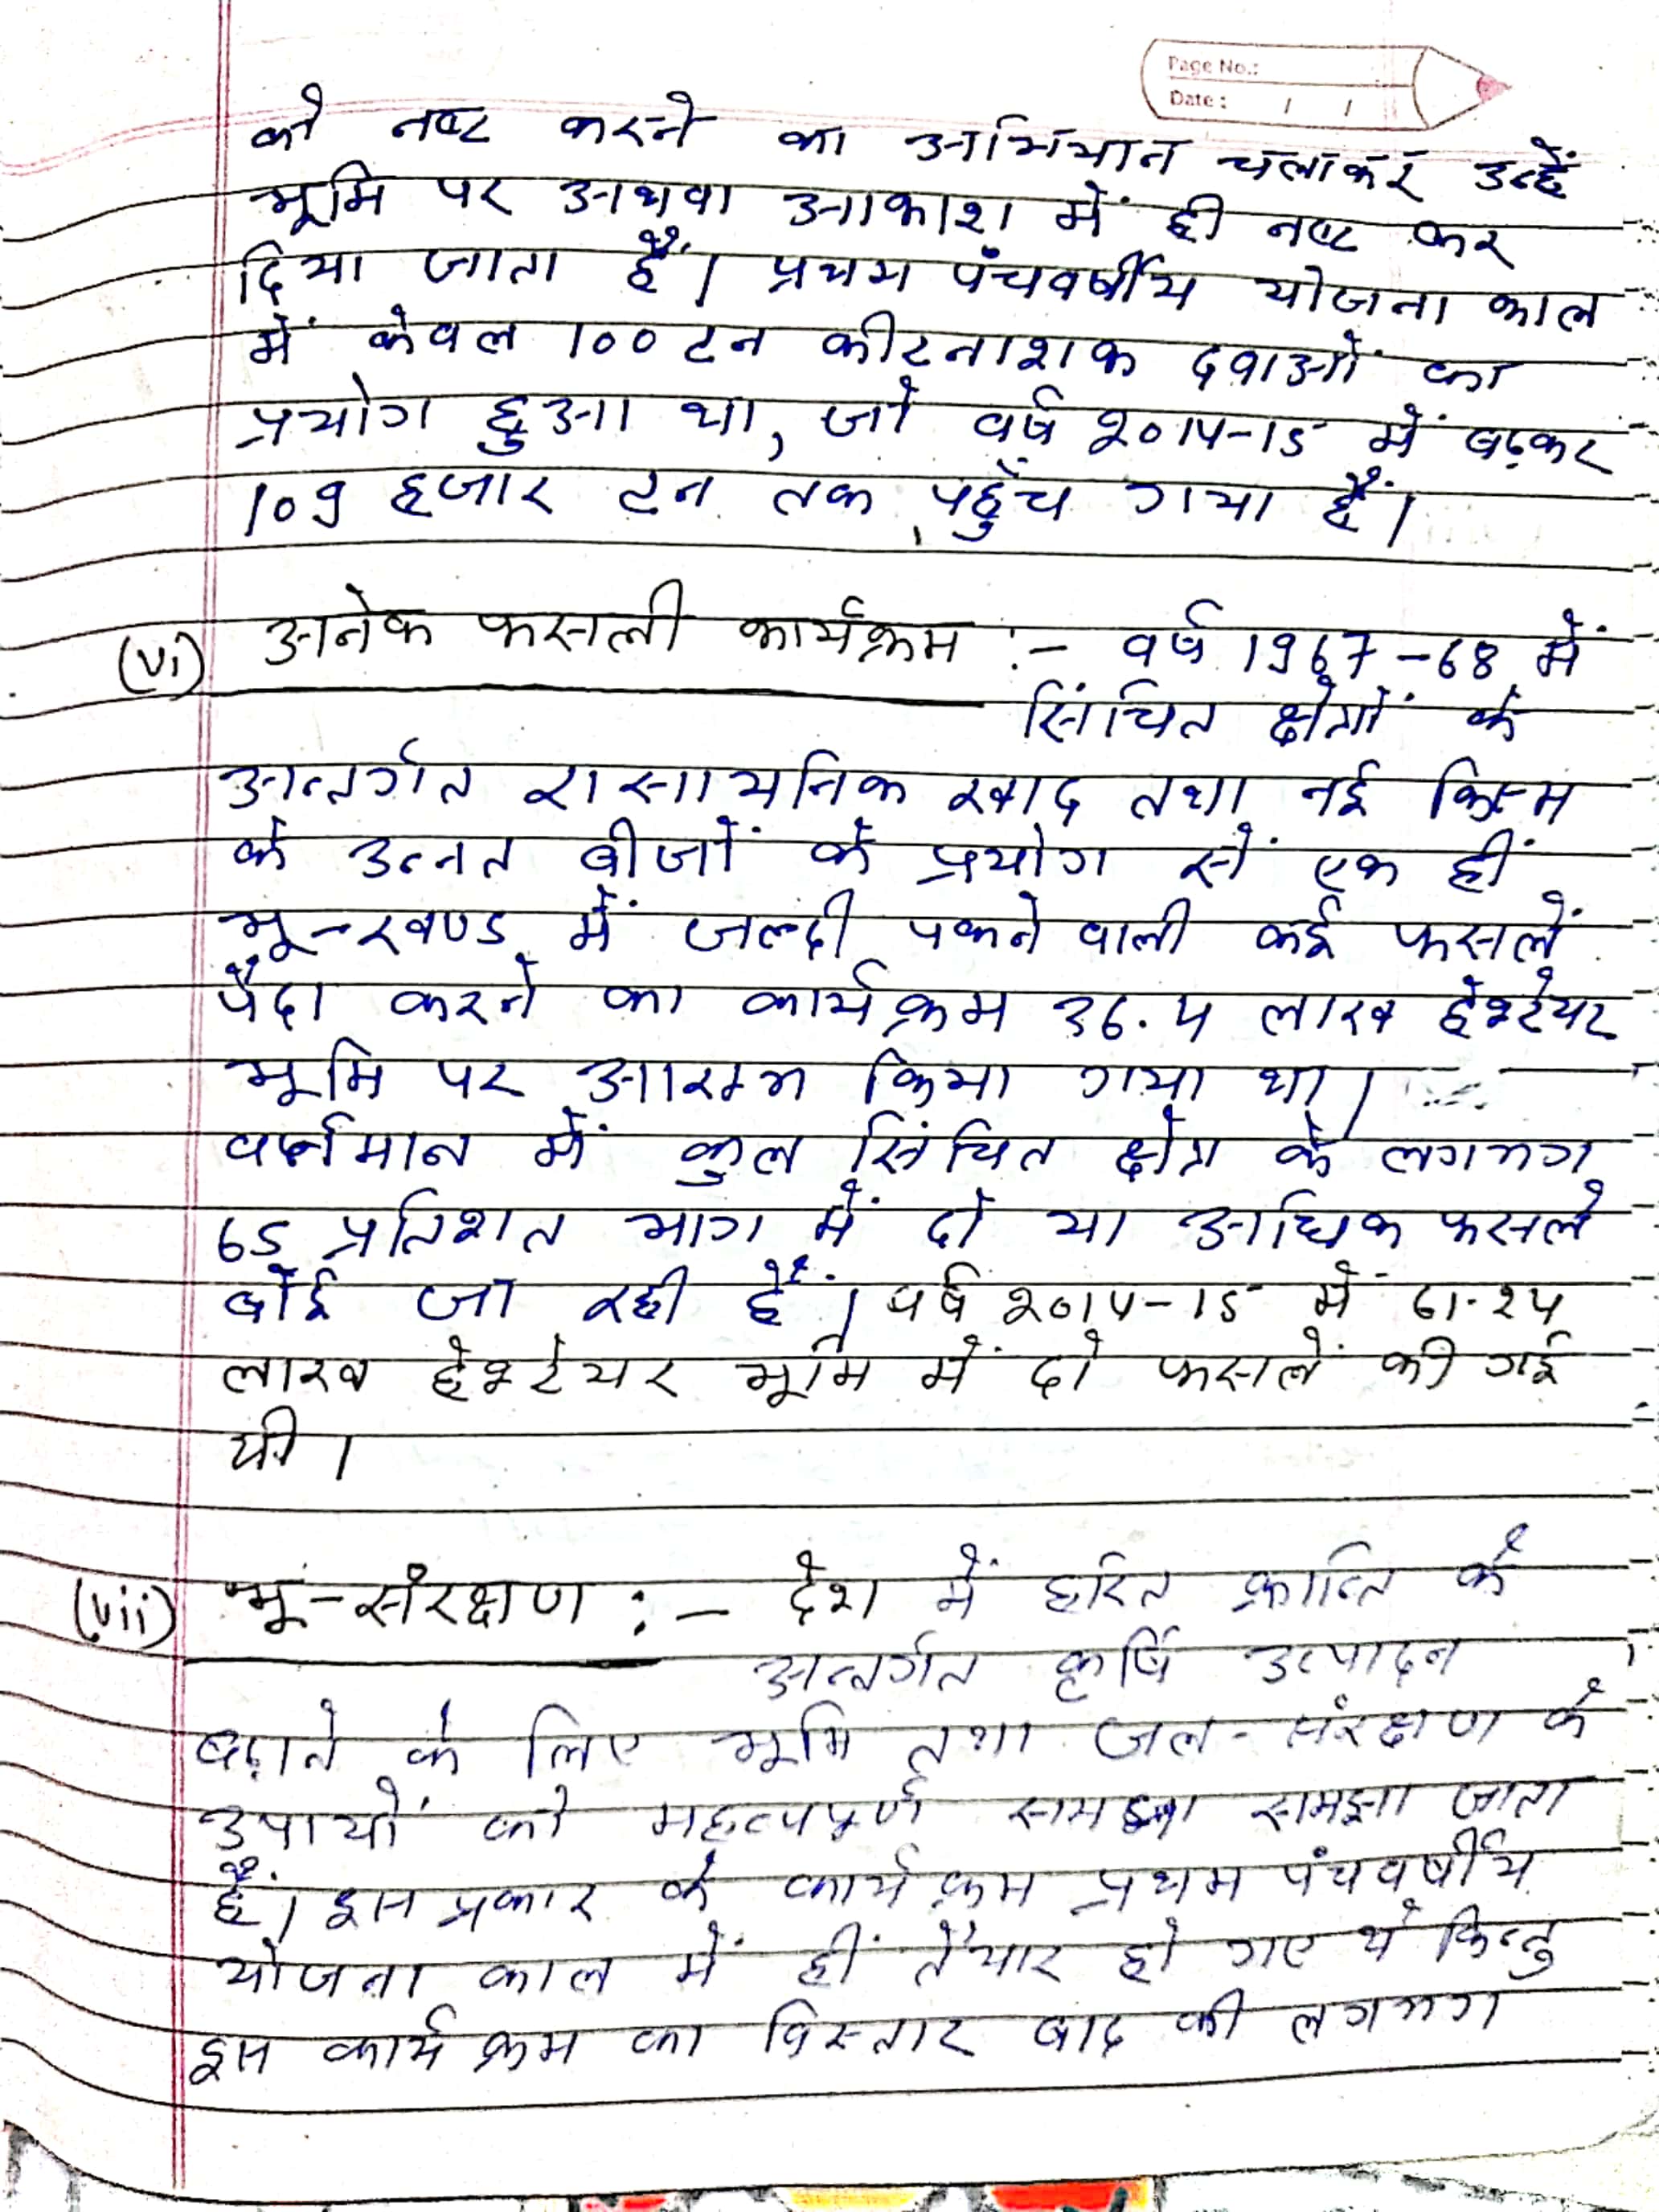 Page No.:
Date: / /
को नष्ट करने का अभियान चलाकर उन्हें
भूमि पर अथवा आकाश में ही नष्ट कर
दिया जाता हैं। प्रथम पंचवर्षीय योजना काल
में केवल 100 टन कीटनाशक दवाओं का
प्रयोग हुआ था, जो वर्ष 2014-15 में बढ़कर
109 हजार टन तक पहुँच गया हैं।
(vi) अनेक फसली कार्यक्रम :- वर्ष 1967-68 में
सिंचित क्षेत्रों के
अन्तर्गत रासायनिक खाद तथा नई किस्म
के उन्नत बीजों के प्रयोग सें एक हीं
भू-खण्ड में जल्दी पकने वाली कई फसलें
पैदा करने का कार्यक्रम 36.4 लाख हेक्टेयर
भूमि पर आरम्भ किया गया था।
वर्त्तमान में कुल सिंचित क्षेत्र के लगभग
65 प्रतिशत भाग में दो या अधिक फसले
बोई जा रही हैं। वर्ष 2014-15 में 61.24
लाख हेक्टेयर भूमि में दो फसलें की गई
थी।
(vii) भू-संरक्षण :- देश में हरित क्रान्ति के
अन्तर्गत कृर्षि उत्पादन
बढ़ाने के लिए भूमि तथा जल-संरक्षण के
उपायों को महत्वपूर्ण समझा जाता
हैं। इस प्रकार के कार्यक्रम प्रथम पंचवर्षीय
योजना काल में हीं तैयार हो गए थे किन्तु
इस कार्यक्रम का विस्तार बाद की लगभग